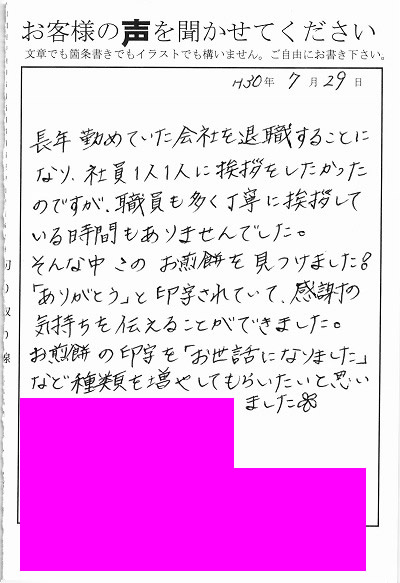 お客様の声を聞かせてください
文章でも箇条書きでもイラストでも構いません。ご自由にお書き下さい。
H30年 7月29日
長年勤めていた会社を退職することに
なり、社員1人1人に挨拶をしたかった
のですが、職員も多く丁寧に挨拶して
いる時間もありませんでした。
そんな中このお煎餅を見つけました。
「ありがとう」と印字されていて、感謝の
気持ちを伝えることができました。
お煎餅の印字を「お世話になりました」
など種類を増やしてもらいたいと思い
ました
切り取り線